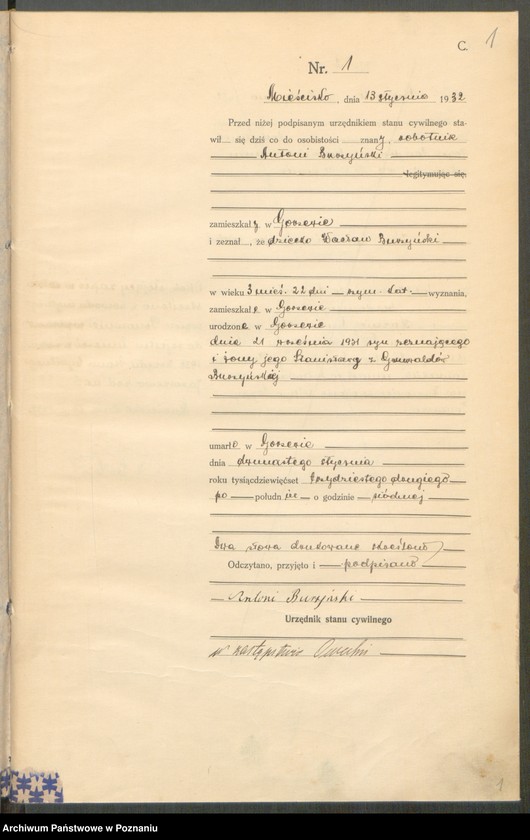 C. 1
Nr. 1
Mieścisko, dnia 13 stycznia 1932
Przed niżej podpisanym urzędnikiem stanu cywilnego sta-
wił się dziś co do osobistości znany, robotnik
Antoni Buszyński
legitymując się,
zamieszkały w Gorzewie
i zeznał, że dziecko Wacław Buszyński
w wieku 3 mieś. 22 dni rzym. kat. wyznania,
zamieszkałe w Gorzewie
urodzone w Gorzewie
dnia 21 września 1931 syn zeznającego
i żony jego Stanisławy z
Buszyńskiej
umarło w Gorzewie
dnia dwunastego stycznia
roku tysiącdziewięćset trzydziestego drugiego
po połudn iu o godzinie siódmej
Dwa słowa drukowane skreślono
Odczytano, przyjęto i podpisano
Antoni Buszyński
Urzędnik stanu cywilnego
w zastępstwie
1
Archiwum Państwowe w Poznaniu